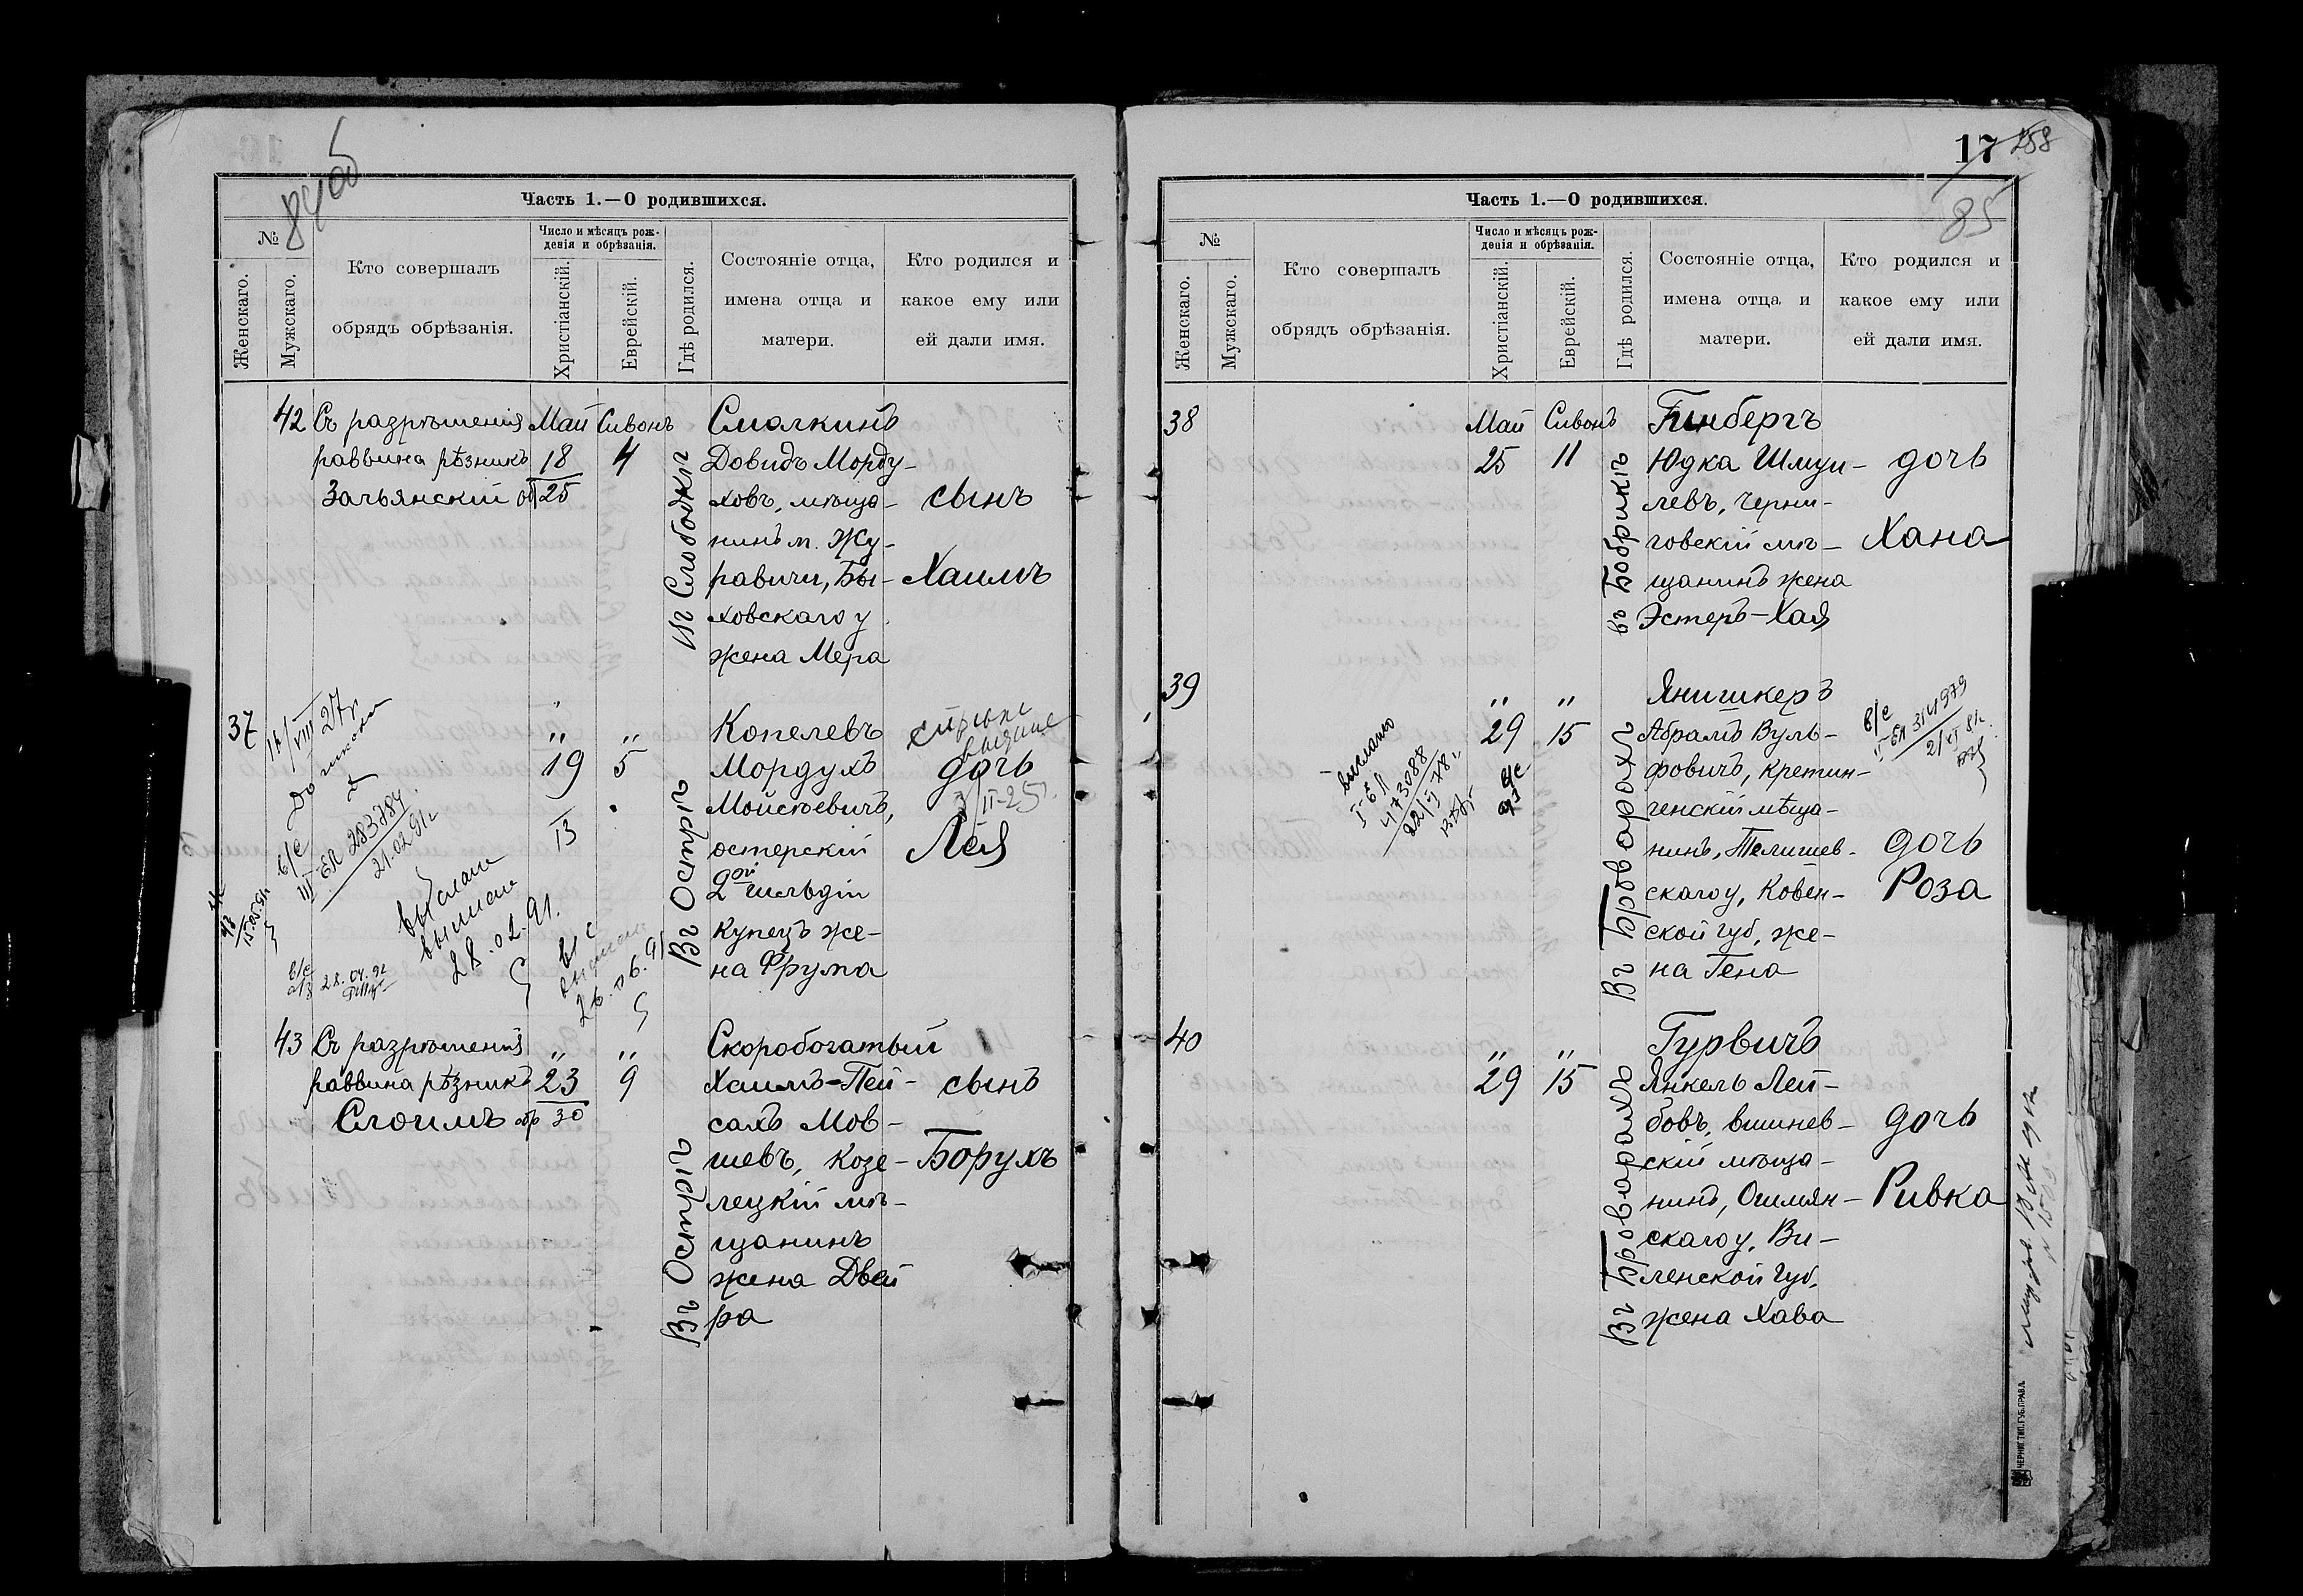 84об
Часть 1.—О родившихся.
№
Женскаго.
Мужскаго.
Кто совершалъ
обрядъ обрѣзанія.
Число и мѣсяцъ рож-
денія и обрѣзанія.
Христіанскій.
Еврейскій.
Гдѣ родился.
Состояніе отца,
имена отца и
матери.
Кто родился и
какое ему или
ей дали имя.
42
Съ разрѣшенія
раввина рѣзникъ
Зачьянскій об
Май
18
25
Сивонъ
4
Слободкѣ
Смолкинъ
Довидъ Морду-
ховъ, мѣща-
нинъ м. Жу-
равичи, Бы-
ховскаго у
жена Мера
сынъ
Хаимъ
37
16/VIII 27г
в/с
III ЕЛ 283784
21.02.91г
выслали
28.02.91.
в/с
26.06.91
15.05.91
в/с
28.04.92
"
19
13
"
5
Въ Острѣ
Копелевъ
Мордухъ
Мойсѣевичъ,
остерскій
2ой гильдіи
купецъ же-
на Фрума
дочь
Лея
43
Съ разрѣшенія
раввина рѣзникъ
Слоимъ обр
"
23
30
"
9
Въ Острѣ
Скоробогатый
Хаимъ-Пей-
сахъ Мов-
шевъ, козе-
лецкій мѣ-
щанинъ
жена Двей
ра
сынъ
Борухъ
17
258
85
Часть 1.—О родившихся.
№
Женскаго.
Мужскаго.
Кто совершалъ
обрядъ обрѣзанія.
Число и мѣсяцъ рож-
денія и обрѣзанія.
Христіанскій.
Еврейскій.
Гдѣ родился.
Состояніе отца,
имена отца и
матери.
Кто родился и
какое ему или
ей дали имя.
38
Май
25
Сивонъ
11
въ Бобрикѣ
Гинбергъ
Юдка Шмуй-
левъ, черни-
говскій мѣ-
щанинъ жена
Эстеръ-Хая
дочь
Хана
39
выслано
I-ЕЛ
473088
"
29
в/с
"
15
Въ Броварахъ
Янишкеръ
Абрамъ Вуль-
фовичъ, кретин-
генскій мѣща-
нинъ, Телишев-
скаго у, Ковен-
ской губ, же-
на Гена
в/с
II-ЕЛ 314979
дочь
Роза
40
"
29
"
15
Въ Броварахъ
Гурвичъ
Янкель Лей-
бовъ, вишнев-
скій мѣща-
нинъ, Ошмян-
скаго у, Ви-
ленской губ.
жена Хава
дочь
Ривка
ЧЕРНИГ.ТИП.ГУБ.ПРАВЛ.